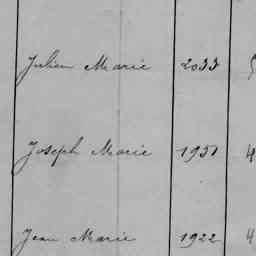 Julien Marie 2033
Joseph Marie 1951 4
Jean Marie 1922 4